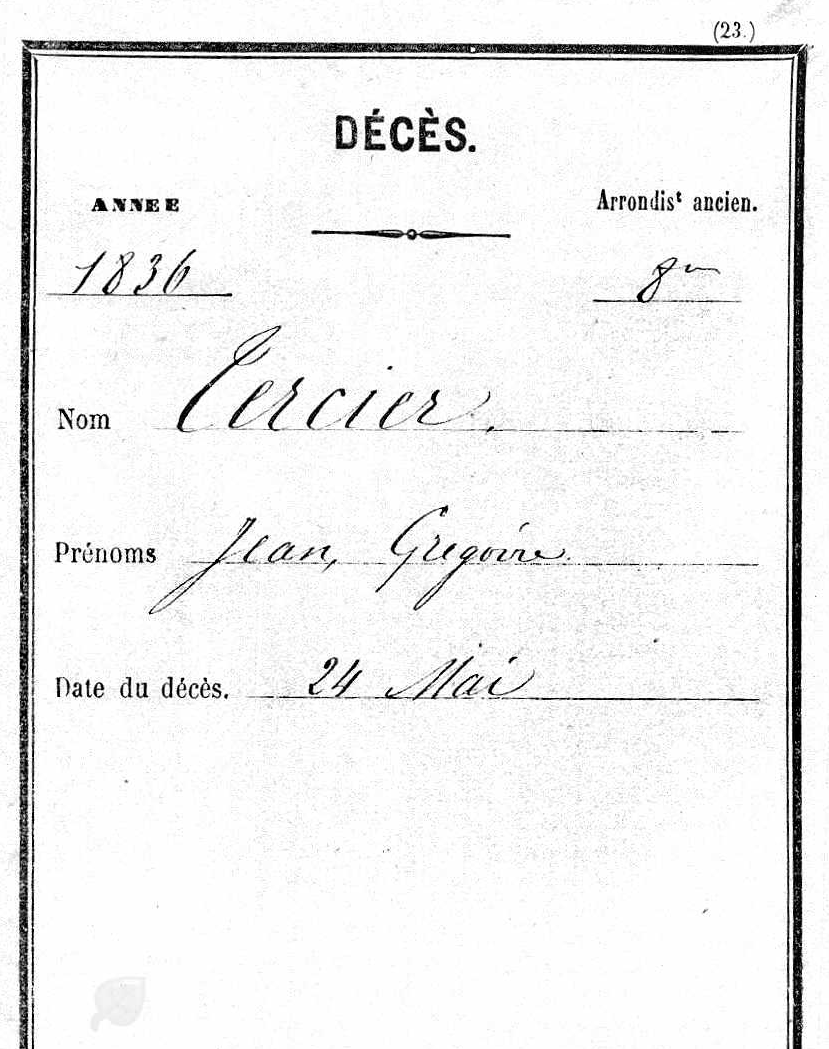 (23.)
DÉCÈS.
ANNEE
Arrondist ancien.
1836
8me
Nom Tercier.
Prénoms Jean, Gregoire
Date du décès. 24 Mai